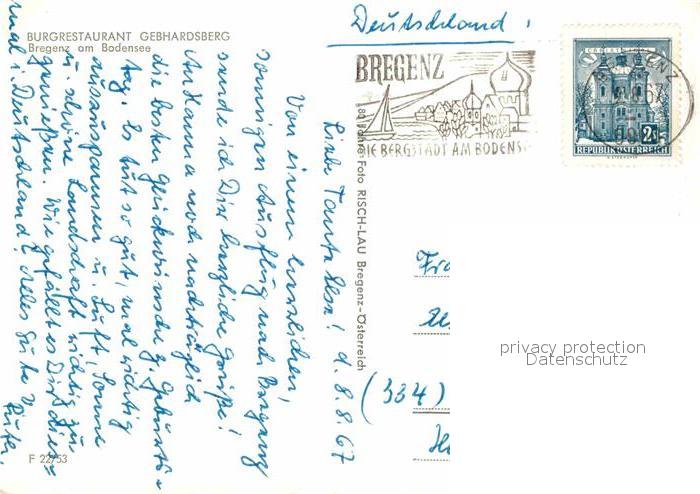 BURGRESTAURANT GEBHARDSBERG
Bregenz am Bodensee
Deutschland!
BREGENZ
DIE BERGSTADT AM BODENS
REPUBLIK ÖSTERREICH
2S
80 Jahre Foto RISCH-LAU Bregenz-Österreich
Liebe Tante Elsa! d. 8.8.67
Von einem herrlichen,
sonnigen Ausflug nach Bregenz
sende ich Dir herzliche Grüße!
nachträglich
die besten Glückwünsche z. Geburts-
tag. Es tut so gut, mal richtig
auszuspannen u. Luft, Sonne
u. schöne Landschaft richtig zu
genießen. Wie gefällt es Dir dies-
mal i. Deutschland? Alles Gute
(334)
F 22/53
privacy protection
Datenschutz